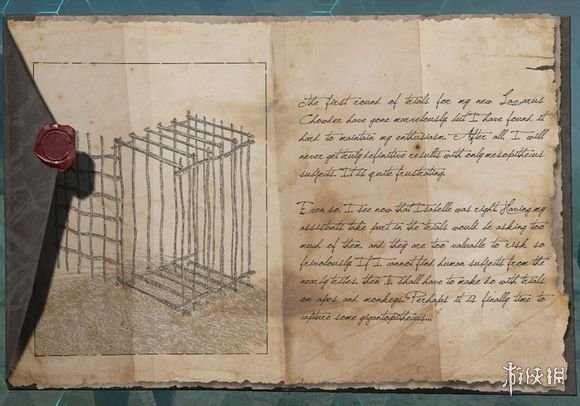 The first round of trials for my new Lazarus
Chowder have gone marvelously, but I have found it
hard to maintain my enthusiasm. After all, I will
never get truly definitive results with only mesopithecus
subjects. It is quite frustrating.
Even so, I see now that Isabelle was right. Having my
assistants take part in the trials would be asking too
much of them, and they are too valuable to risk so
frivolously. If I cannot find human subjects from the
nearby tribes, then I shall have to make do with trials
on apes and monkeys. Perhaps it is finally time to
capture some gigantopithecus...
游侠网